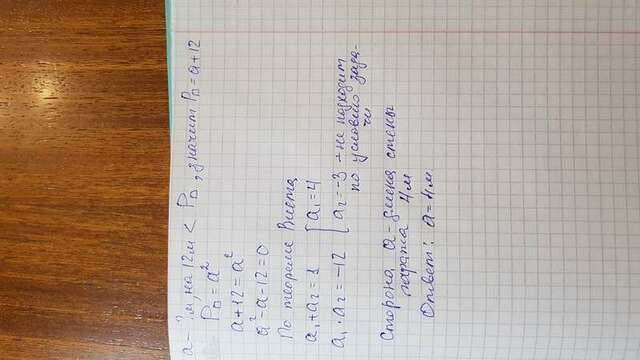 a - ? м, на 12 м < P□, значит P□ = a + 12
P□ = a²
a + 12 = a²
a² - a - 12 = 0
По теореме Виета
a₁ + a₂ = 1 [ a₁ = 4
a₁ · a₂ = -12 a₂ = -3 - не подходит
по условию зада-
чи
Сторона a - длина стены
гаража 4 м
Ответ: a = 4 м